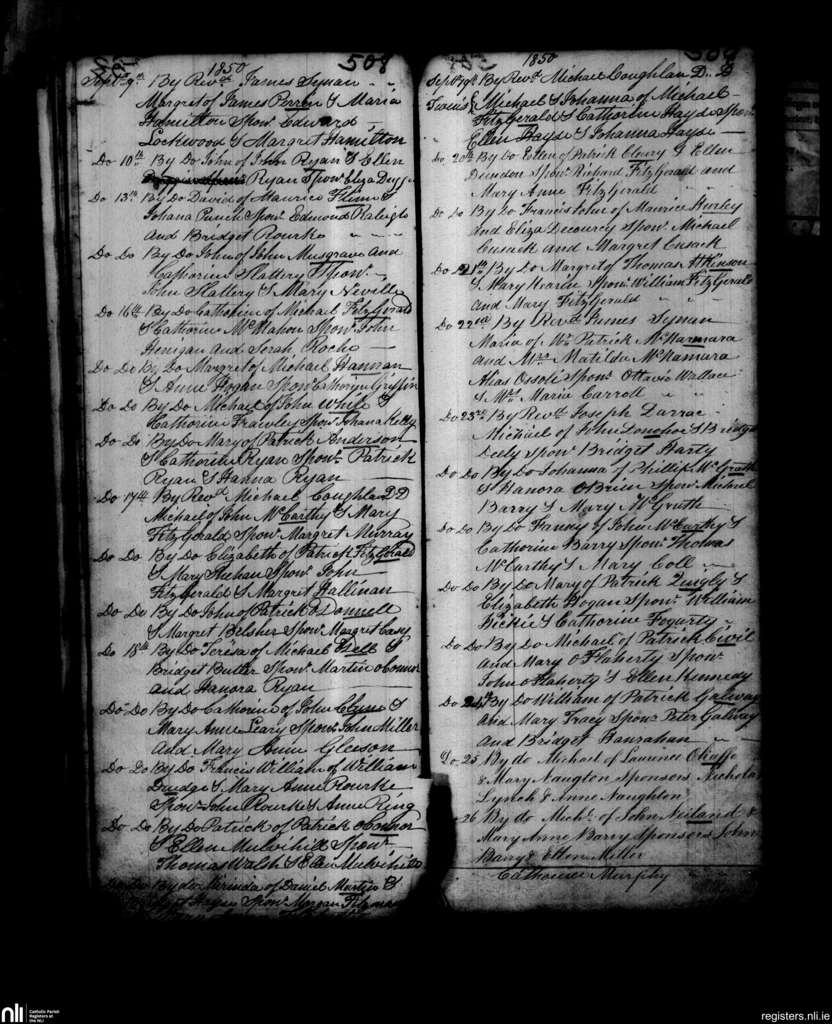 1850 508
Sept. 9th By Revd. James Synan
Margret of James Perren & Maria
Hamilton Spons. Edward
Lockwood & Margret Hamilton
Do 10th By Do John of John Ryan & Ellen
Ryan Spons. Eliza
Do 13th By Do David of Maurice Flinn &
Johana Spons. Edmond Raleigh
and Bridget Rourke
Do Do By Do John of John Musgrave and
Catherine Slattery Spons.
John Slattery & Mary Neville
Do 16th By Do Catherine of Michael FitzGerald
& Catherine McMahon Spons. John
Henigan and Sarah Roche
Do Do By Do Margret of Michael Hannan
& Anne Hogan Spons. Catherine Griffin
Do Do By Do Michael of John White &
Catherine Frawley Spons. Johana Kelly
Do Do By Do Mary of Patrick Anderson
& Catherine Ryan Spons. Patrick
Ryan & Hanna Ryan
Do 17th By Revd. Michael Coughlan DD
Michael of John McCarthy & Mary
FitzGerald Spons. Margret Murray
Do Do By Do Elizabeth of Patrick FitzGerald
& Mary Spons. John
FitzGerald & Margret Hallinan
Do Do By Do John of Patrick O Donnell
& Margret Belsher Spons. Margret Casy
Do 18th By Do Teresa of Michael &
Bridget Butler Spons. Martin O Connor
and Hanora Ryan
Do Do By Do Catherine of John Clune &
Mary Anne Leary Spons. John Miller
and Mary Anne Gleeson
Do Do By Do Francis William of William
& Mary Anne Rourke
Spons. John Rourke & Anne Ring
Do Do By Do Patrick of Patrick O Connor
& Ellen Mulvihil Spons.
Thomas Walsh & Ellen Mulvihil
Do Do By Do of Daniel Martin &
Hayes Spons. Morgan
1850
Sept. 19th By Revd. Michael Coughlan D.. D
Twins { Michael & Johanna of Michael
FitzGerald & Catherine Hayse Spons.
Ellen Hayse & Johanna Hayse
Do 20th By Do Ellen of Patrick Cleary & Ellen
Dundon Spons. Richard FitzGerald and
Mary Anne FitzGerald
Do Do By Do Francis John of Maurice Hurley
and Eliza Decourcy Spons. Michael
Cusack and Margret Cusack
Do 21st By Do Margret of Thomas Atkinson
& Mary Spons. William FitzGerald
and Mary FitzGerald
Do 22nd By Revd. James Synan
Maria of Patrick McNamara
and Mrs. Matilda McNamara
Alias Ossoli Spons. Ottavio Wallace
& Mrs. Maria Carroll
Do 23rd By Revd. Joseph
Michael of John & Bridget
Deely Spons. Bridget Harty
Do Do By Do Johanna of Phillip McGrath
& Hanora O Brien Spons. Michael
Barry & Mary McGrath
Do Do By Do Fanny of John McCarthy &
Catherine Barry Spons. Thomas
McCarthy & Mary Coll
Do Do By Do Mary of Patrick &
Elizabeth Hogan Spons. William
& Catherine Fogarty
Do Do By Do Michael of Patrick
and Mary O Flaherty Spons.
John O Flaherty & Ellen Kennedy
Do 24th By Do William of Patrick Galway
and Mary Tracy Spons. Peter Galway
and Bridget Hanrahan
Do. 25 By do Michael of Laurence
& Mary Naugton Sponsors Nicholas
Lynch & Anne Naughton
26 By do Michl. of John Neiland &
Mary Anne Barry Sponsors John
Barry & Ellen Miller
Catherine Murphy
nli
Catholic Parish
Registers at
the NLI
registers.nli.ie